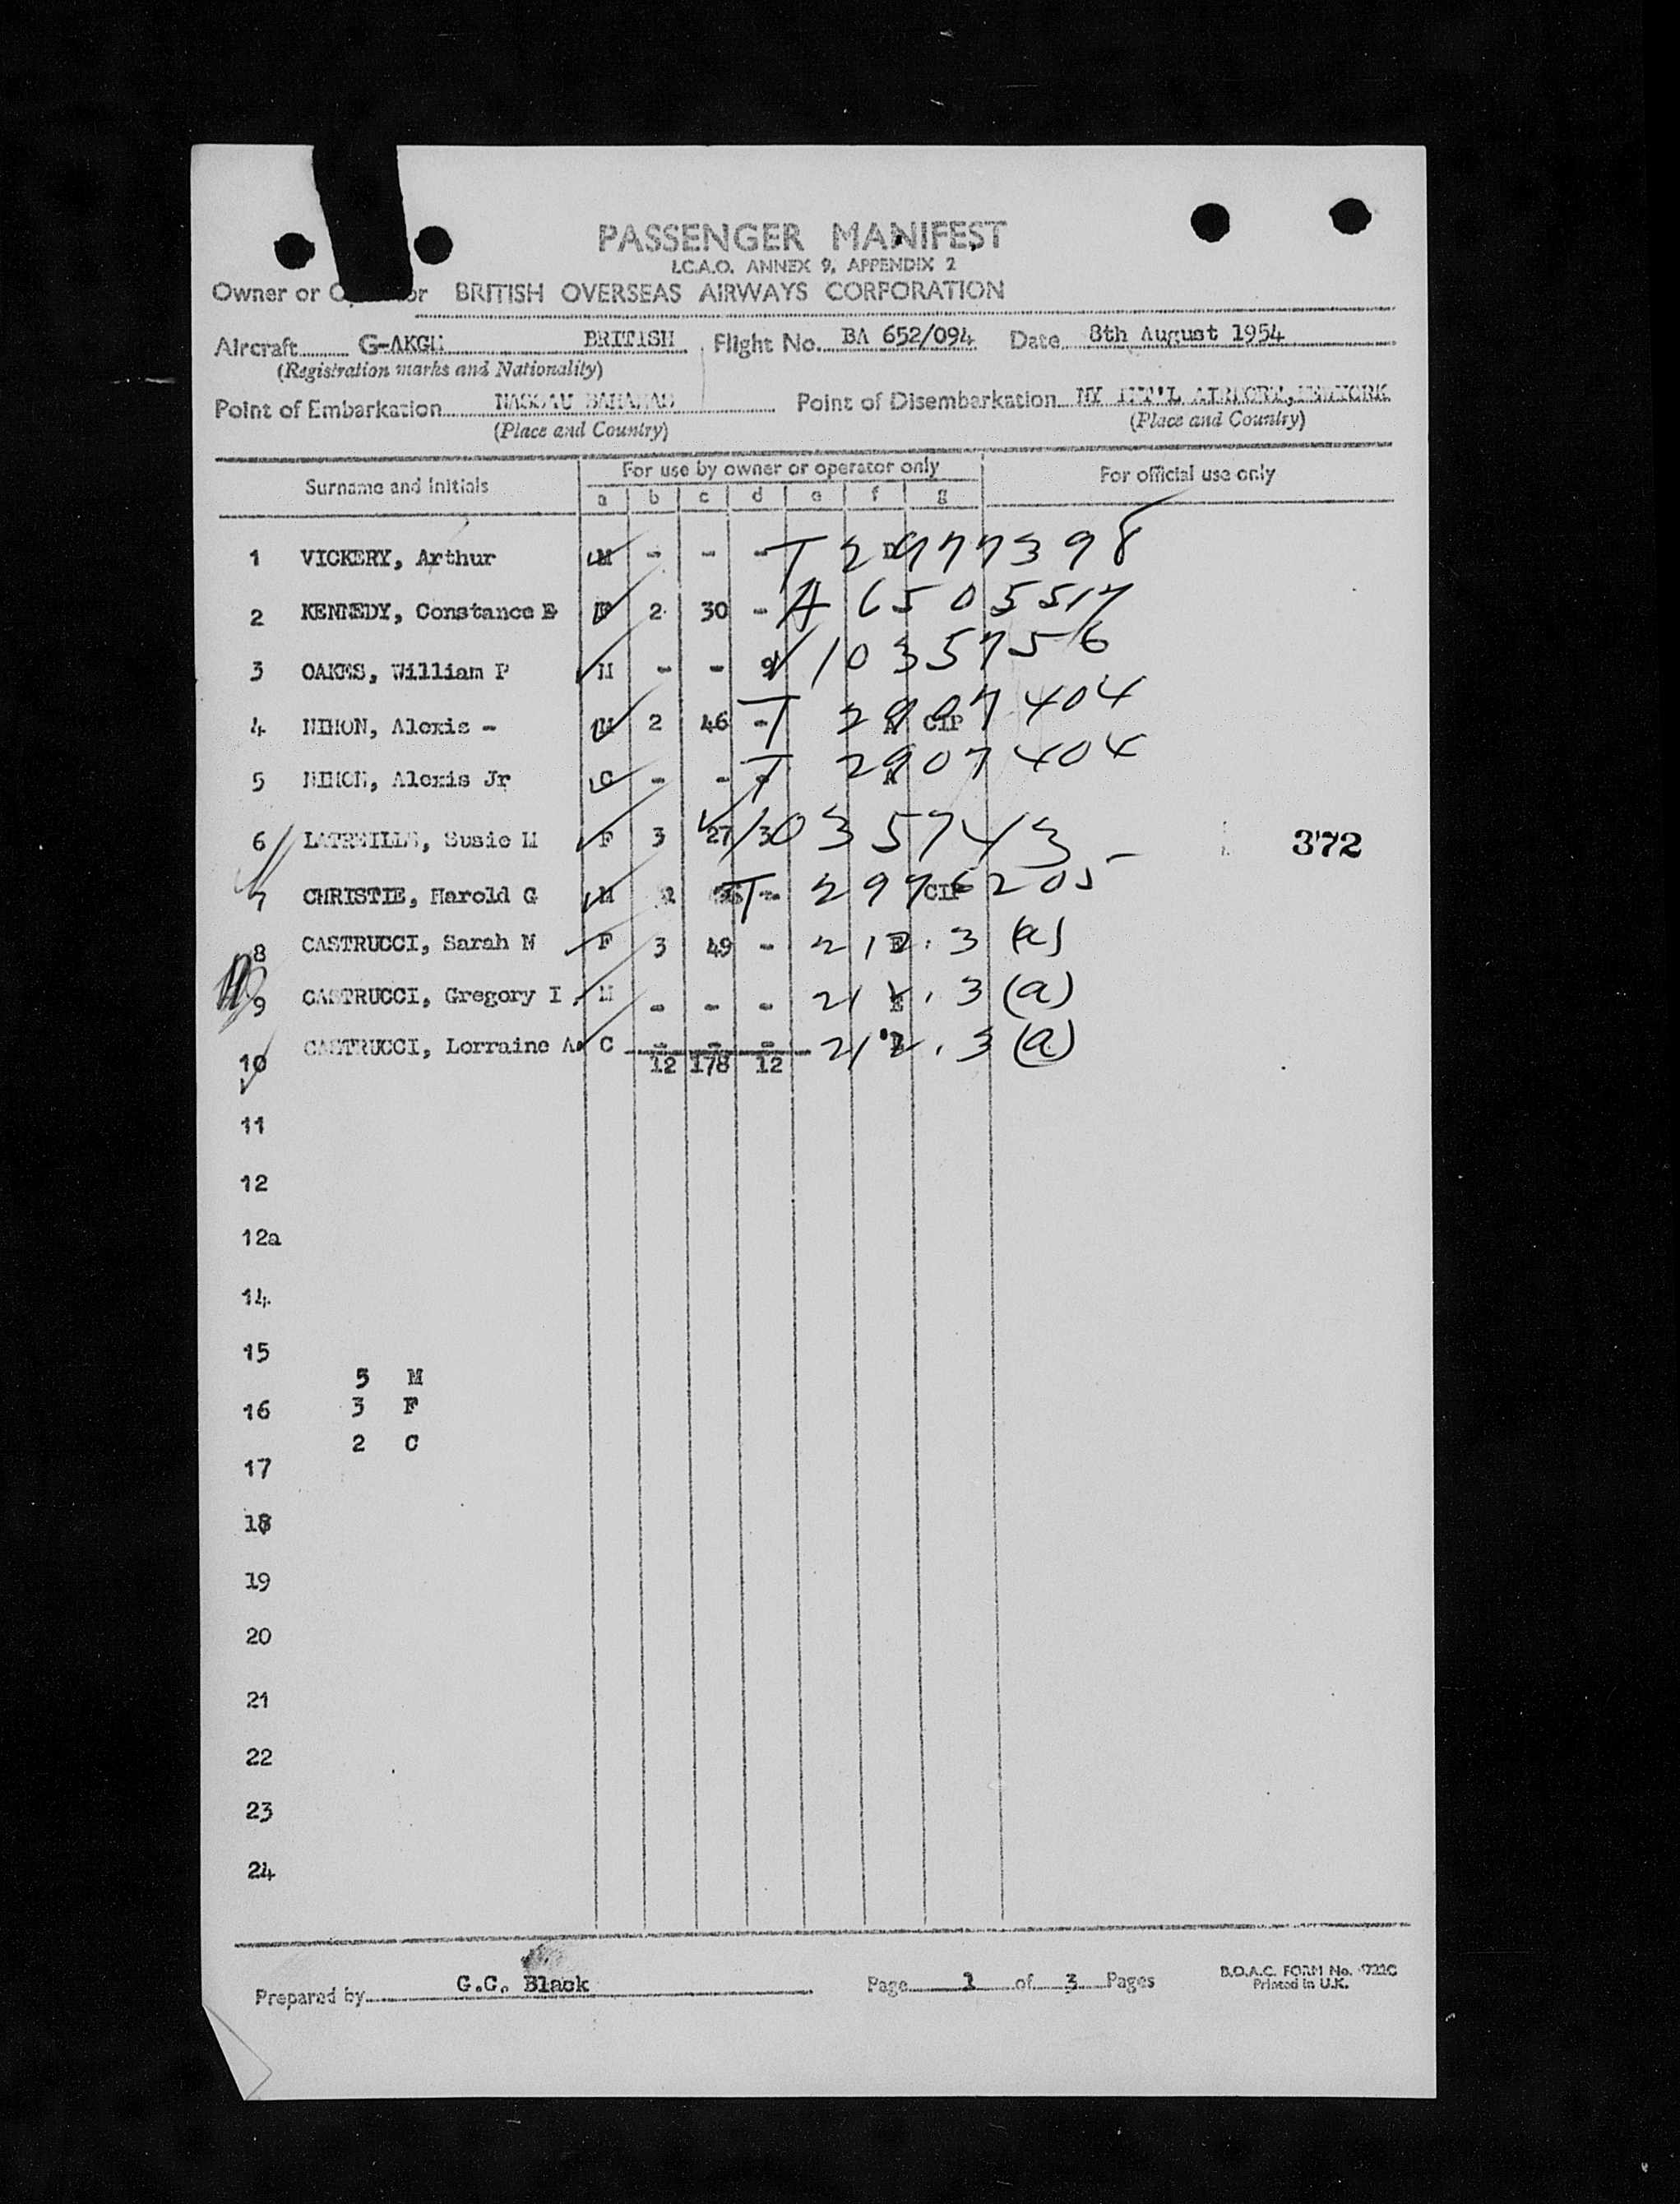 PASSENGER MANIFEST
I.C.A.O. ANNEX 9, APPENDIX 2
Owner or BRITISH OVERSEAS AIRWAYS CORPORATION
Aircraft BRITISH Flight No. BA 652/094 Date 8th August 1954
(Registration marks and Nationality)
Point of Embarkation NASSAU BAHAMAS Point of Disembarkation NY INT'L AIRPORT, NEWYORK
(Place and Country) (Place and Country)
Surname and Initials For use by owner or operator only For official use only
a b c d e f g
1 VICKERY, Arthur M - - - T 2977398
2 KENNEDY, Constance E F 2 30 - A 6505517
3 OAKES, William P M - - 9 10357556
4 NIHON, Alexis - M 2 46 - T 2907404 CIP
5 NIHON, Alexis Jr C - - - T 2907404
6 LATREILLE, Susie M F 3 27 3 10357413 372
7 CHRISTIE, Harold G M 2 - T 2976205 CIP
8 CASTRUCCI, Sarah N F 3 49 - 212.3 (a)
9 CASTRUCCI, Gregory I M - - - 212.3 (a)
10 CASTRUCCI, Lorraine A. C - - - 212.3 (a)
12 178 12
11
12
12a
14
15
5 M
16 3 F
2 C
17
18
19
20
21
22
23
24
Prepared by G.C. Black Page 1 of 3 Pages
B.O.A.C. FORM No.
Printed in U.K.